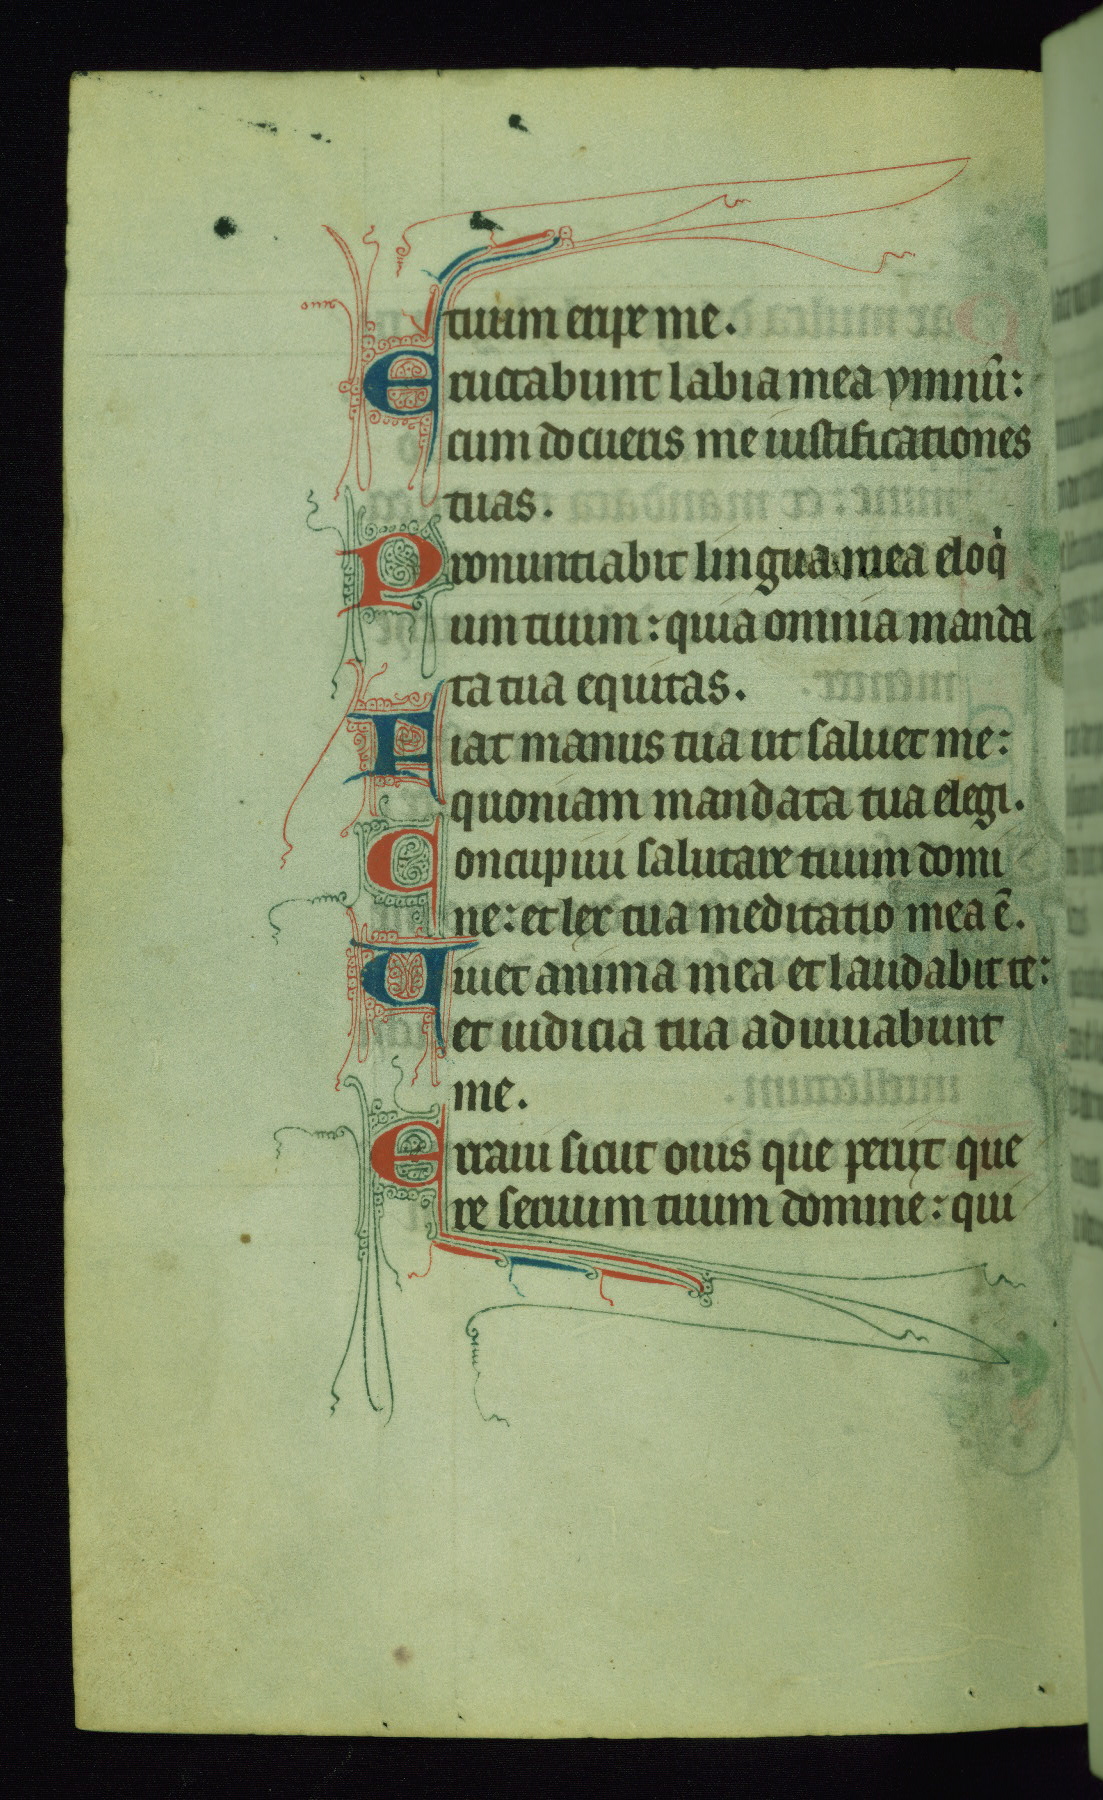 tuum eripe me.
Eructabunt labia mea ymnū:
cum docueris me iustificationes
tuas.
Pronuntiabit lingua mea eloqi
um tuum: quia omnia manda
ta tua equitas.
Fiat manus tua ut saluet me:
quoniam mandata tua elegi.
Concupiui salutare tuum domi
ne: et lex tua meditatio mea ē.
Uiuet anima mea et laudabit te:
et iudicia tua adiuuabunt
me.
Erraui sicut ouis que periit que
re seruum tuum domine: qui